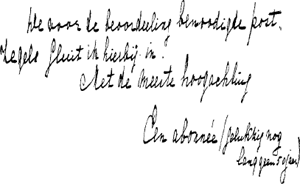 De voor de beoordeeling benoodigde post-
zegels sluit ik hierbij in.
Met de meeste hoogachting
Een abonnée (gelukkig nog
lang geen 50 jaar)